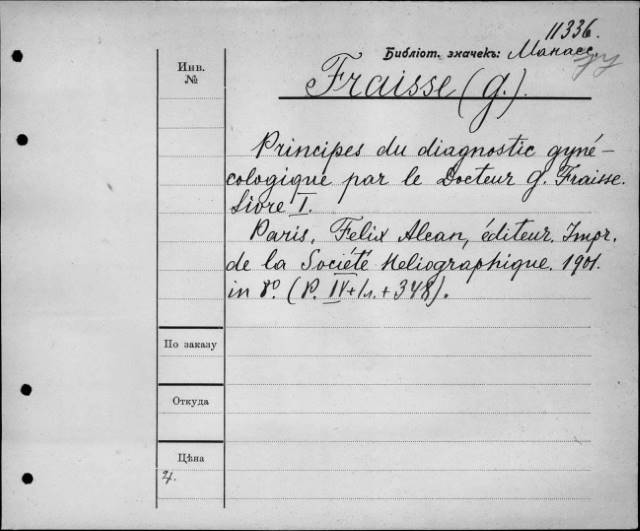 11336.
Библіот. значекъ: Манасс.
Инв.
№
Fraisse (G.).
Principes du diagnostic gyné-
cologique par le Docteur G. Fraisse.
Livre I.
Paris, Felix Alcan, éditeur. Impr.
de la Société Heliographique. 1901.
in 8º. (P. IV+1л.+348).
По заказу
Откуда
Цѣна